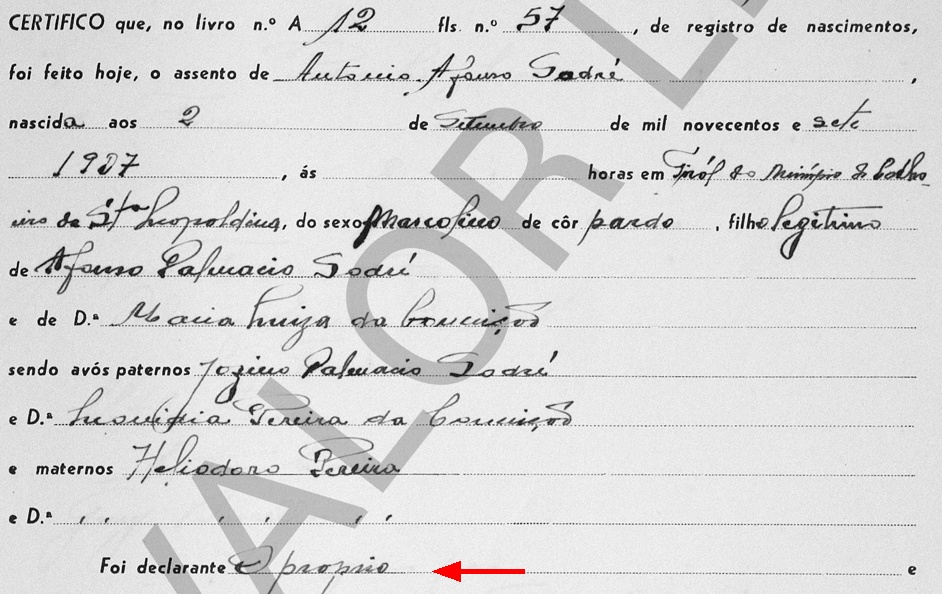 CERTIFICO que, no livro n.º A 12 fls. n.º 57, de registro de nascimentos,
foi feito hoje, o assento de Antonio Afonso Sodré,
nascida aos 2 de Setembro de mil novecentos e sete
1907, ás horas em Tiról do Município de Cachoe
ira de Sta Leopoldina, do sexo Mascolino de côr pardo, filho legitimo
de Afonso Palmacio Sodré
e de D.ª Maria Luiza da Conceição
sendo avós paternos Jozino Palmacio Sodré
e D.ª Pereira da Conceição
e maternos Heliodoro Pereira
e D.ª , , , , , ,
Foi declarante O proprio e
VALOR